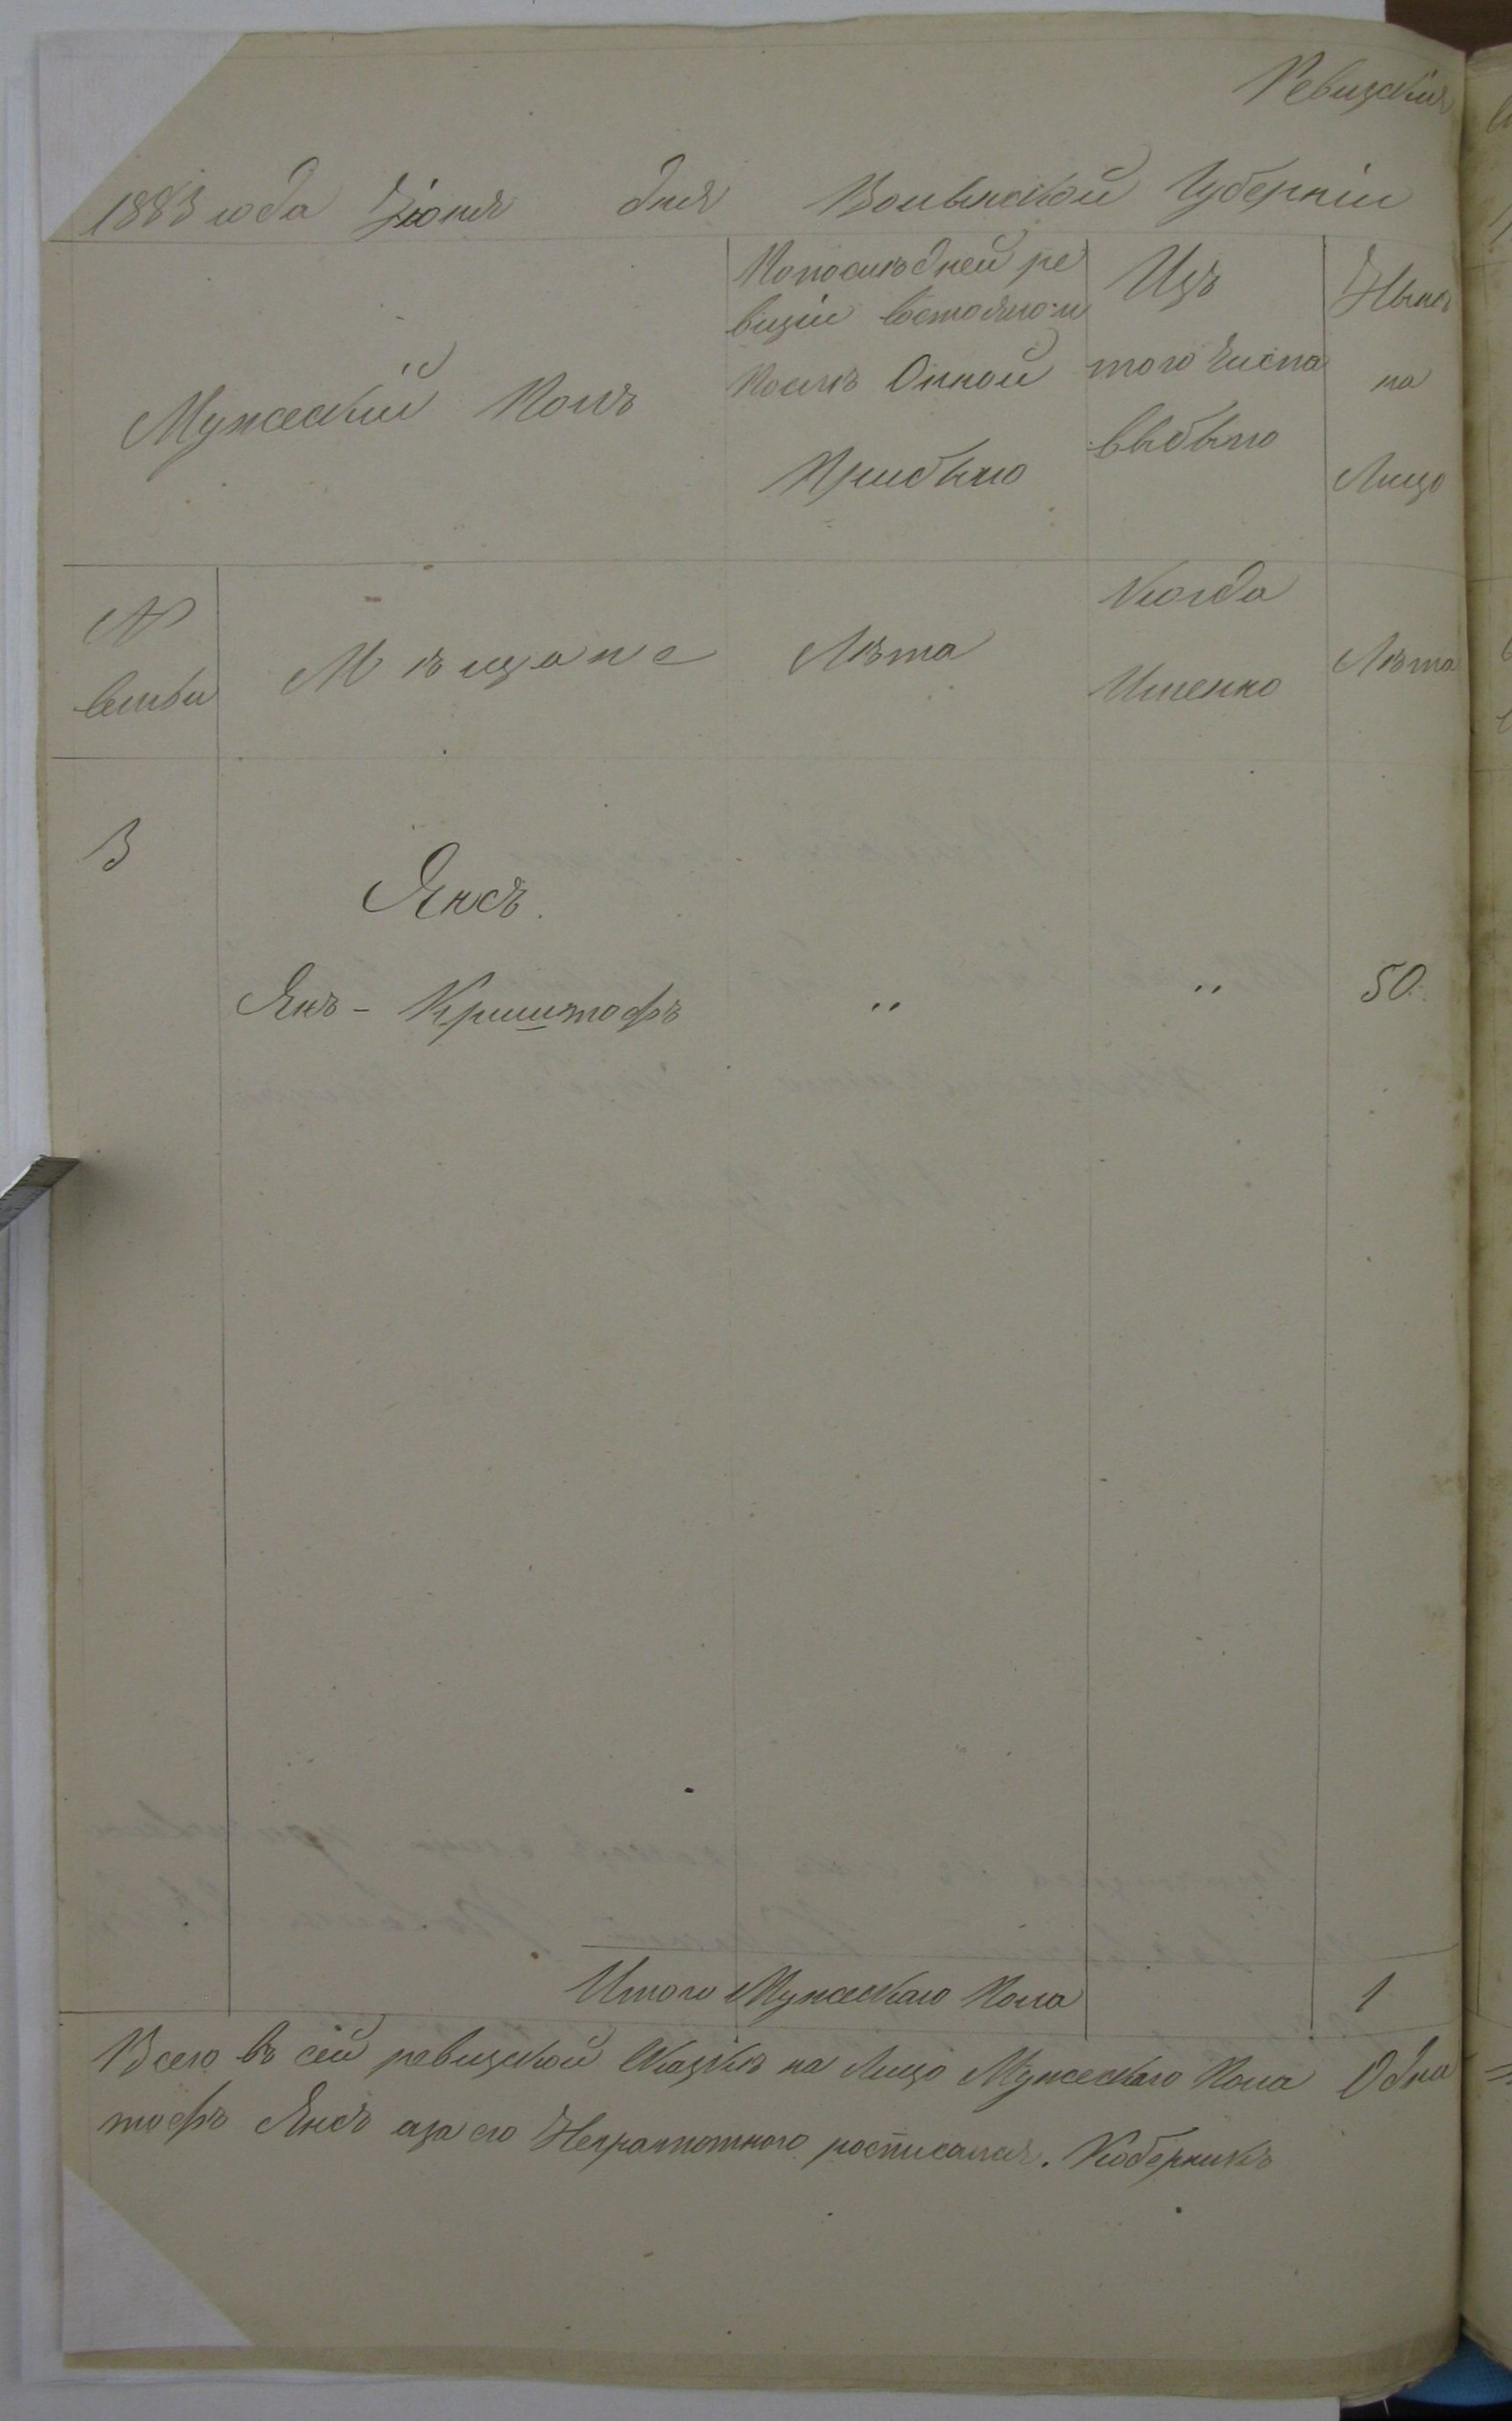 Ревизская
1883 года Іюня дня Волынской Губерніи
Мужескій Полъ
По последней ре
визіи состояло и
После Онной
Прибыло
Изъ
того числа
выбыло
Ныне
на
Лицо
№
семьи
Мѣщане
Лѣта
Когда
Именно
Лѣта
3
Янсъ.
Янъ - Криштофъ " " 50.
Итого Мужескаго Пола 1
Всего въ сей ревизской Сказкѣ на Лицо Мужескаго Пола Одна
тофъ Янсъ аза его Неграмотного росписался. Коберникъ